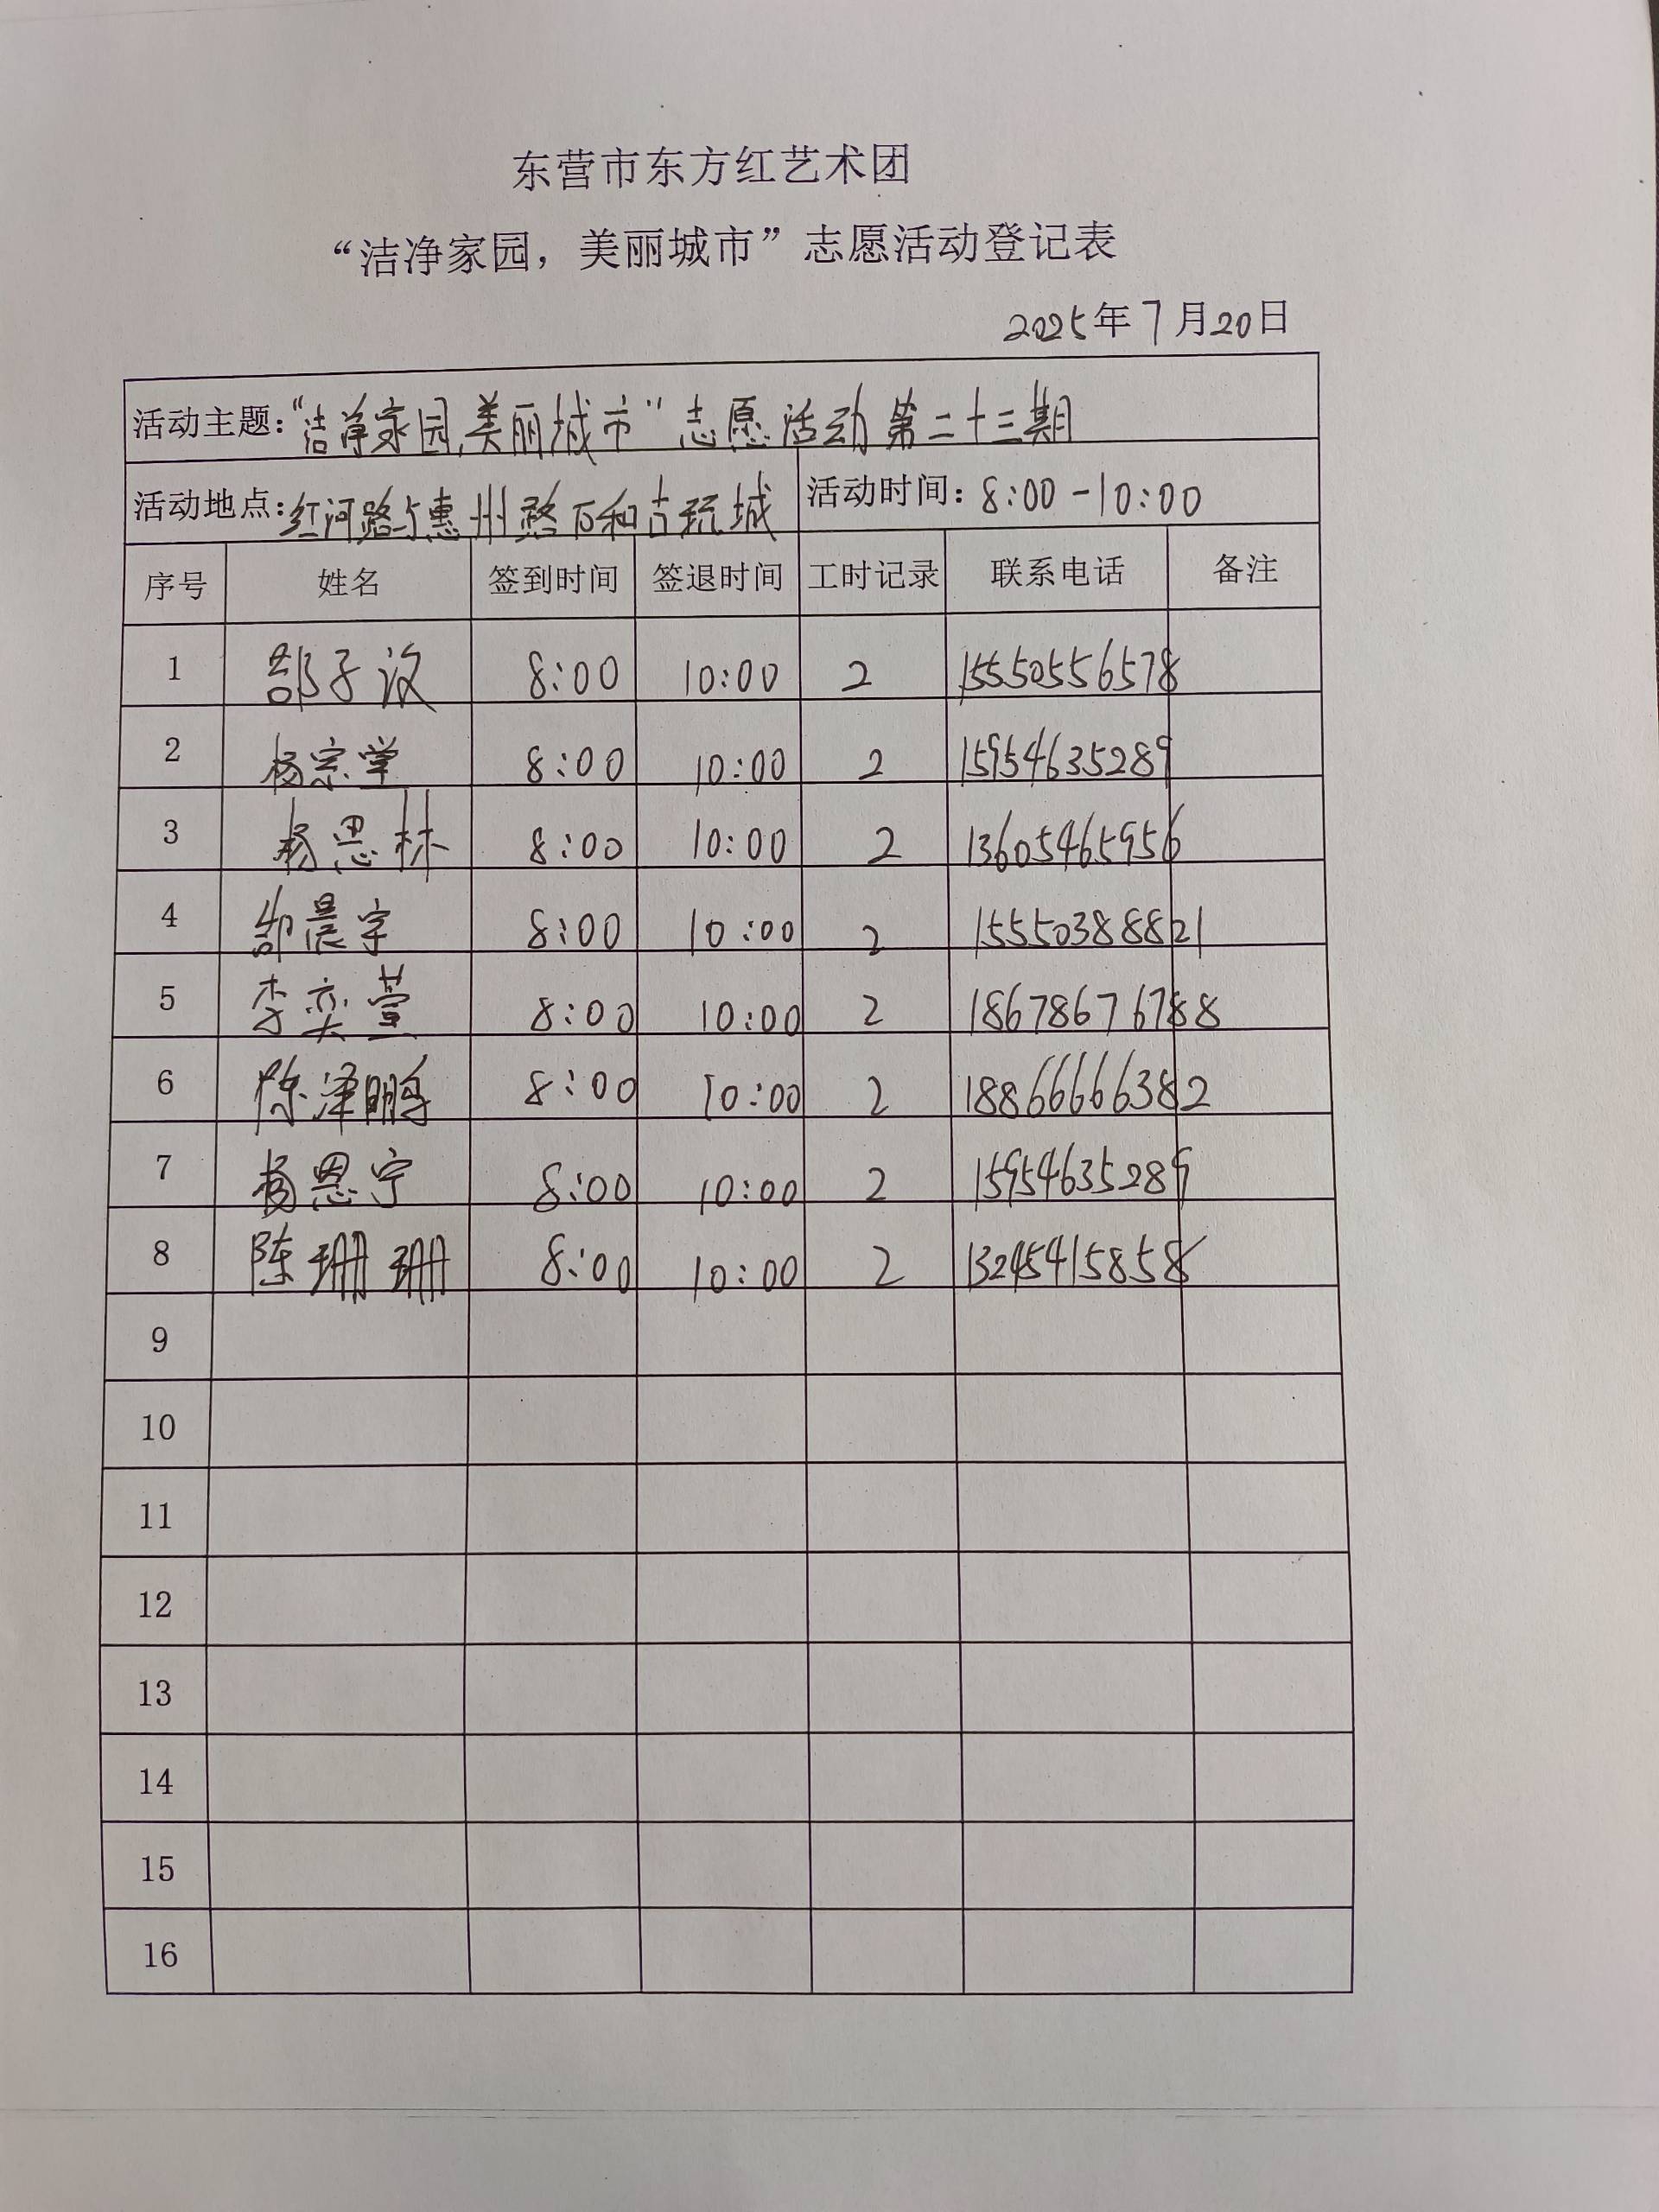 东营市东方红艺术团
“洁净家园，美丽城市”志愿活动登记表
2025年7月20日
活动主题：“洁净家园，美丽城市”志愿活动第二十三期
活动地点：红河路与惠州路万和古玩城 活动时间：8:00-10:00
序号 姓名 签到时间 签退时间 工时记录 联系电话 备注
1 子 8:00 10:00 2 15550556578
2 杨宗堂 8:00 10:00 2 15954635289
3 杨恩林 8:00 10:00 2 13605465956
4 晨宇 8:00 10:00 2 15550388821
5 李奕萱 8:00 10:00 2 18678676788
6 陈泽鹏 8:00 10:00 2 18866666382
7 杨恩宁 8:00 10:00 2 15954635289
8 陈珊珊 8:00 10:00 2 13245415858
9
10
11
12
13
14
15
16